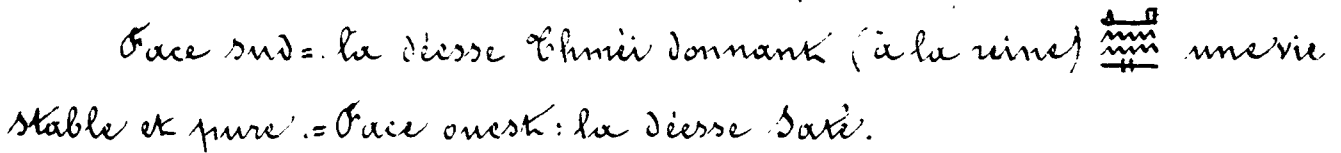 Face sud = la déesse Thméi donnant (à la reine) 𓌳𓂝𓊪𓈖𓈖𓈖𓊃 une vie
stable et pure. = Face ouest : la déesse Saté.